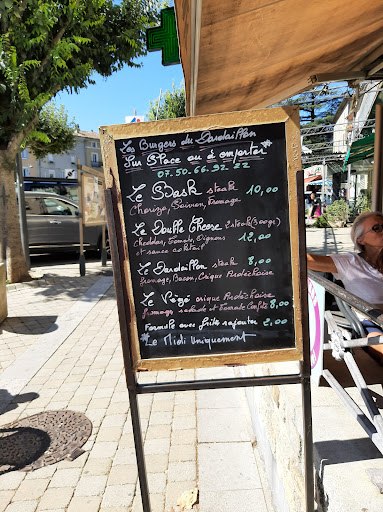 Les Burgers du Dardaillon
Sur Place ou à emporter*
07.50.66.95.22
Le Bask steak 10,00
Chorizo, Poivron, fromage
Le Double Cheese 2 steaks (300g)
Cheddar, Tomate, Oignons 12,00
et sauce
Le Dardaillon steak 8,00
fromage, Bacon, Crique Ardéchoise
Le Végé crique Ardéchoise
fromage salade et Tomate Confite 8,00
Formule avec frites rajouter 2,00
*Le Midi Uniquement